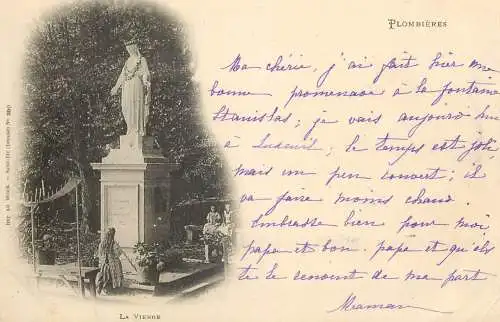 PLOMBIÈRES
Ma chérie, j'ai fait hier une
bonne promenade à la fontaine
Stanislas; je vais aujourd'hui
à Luxeuil; le temps est joli
mais un peu couvert; il
va faire moins chaud.
Embrasse bien pour moi
papa et bon papa et qu'ils
te le rendent de ma part
Maman
LA VIERGE